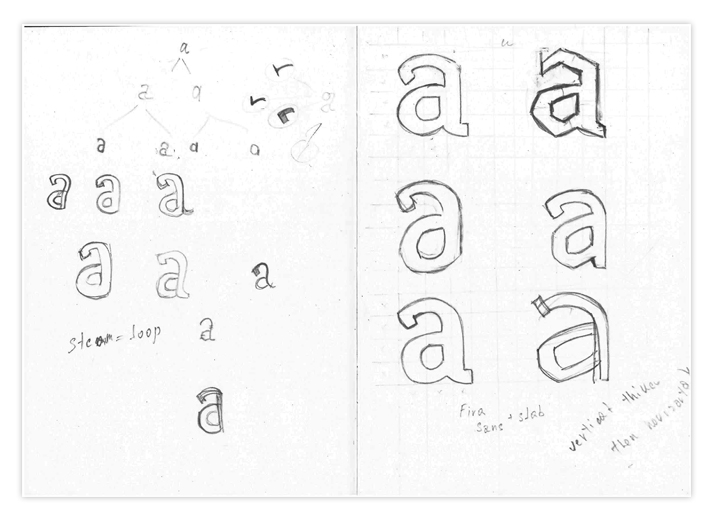 a
a a
a a a a
a a a
a a a
steam = loop
a
a
a
a a
a a
a a
Fira
Sans + slab
vertical thicker
then horizontal